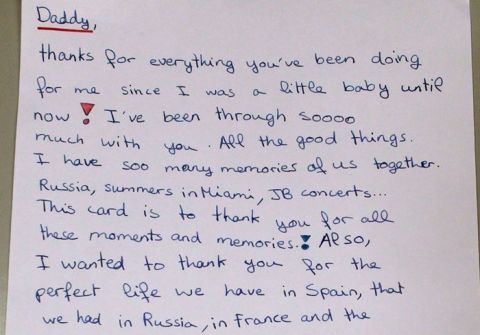 Daddy,
thanks for everything you've been doing
for me since I was a little baby until
now ! I've been through soooo
much with you. All the good things.
I have soo many memories of us together.
Russia, summers in Miami, JB concerts...
This card is to thank you for all
these moments and memories.! Also,
I wanted to thank you for the
perfect life we have in Spain, that
we had in Russia, in France and the